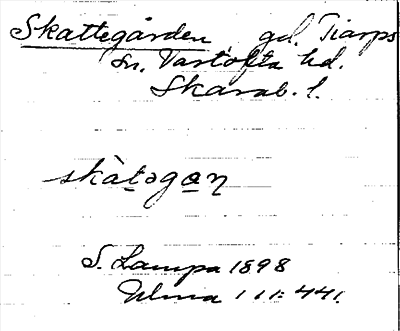 Skattegården gd. Tiarps
sn. Vartofta hd.
Skarab. l.
skàt̲əga̲ɳ
S. Lampa 1898
Ulma 111:441.